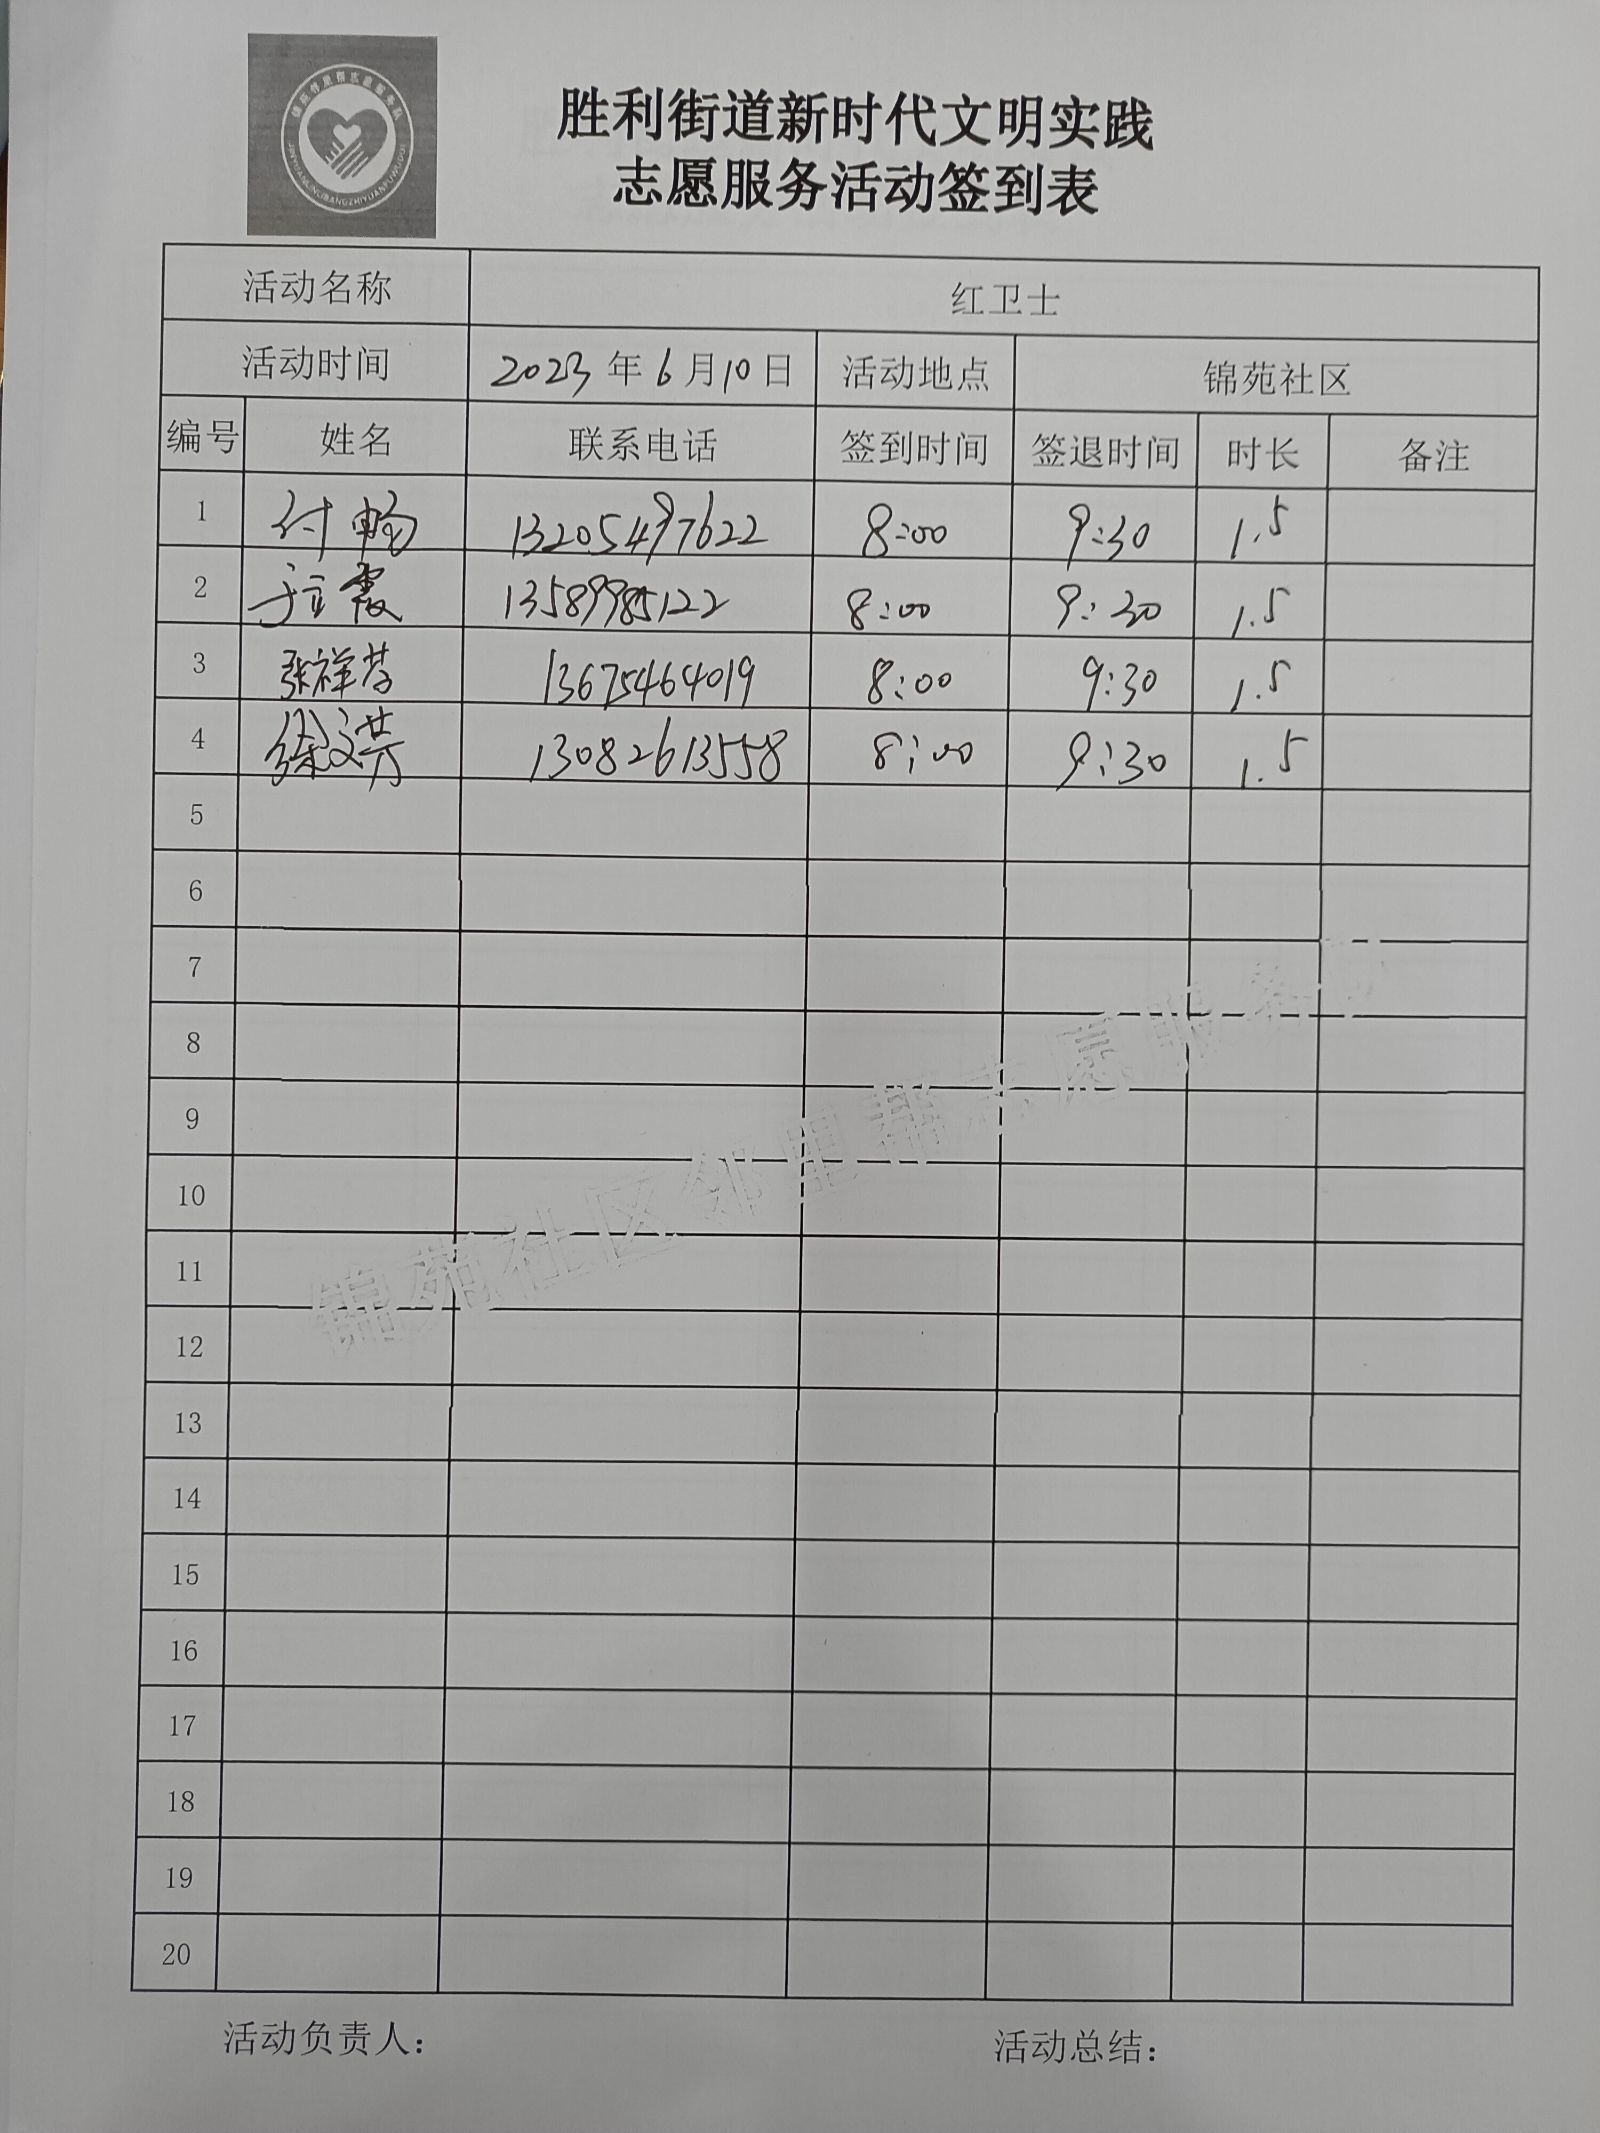 锦苑邻里帮志愿服务队
JINYUANLINLIBANGZHIYUANFUWUDUI
胜利街道新时代文明实践
志愿服务活动签到表
活动名称 红卫士
活动时间 2023年6月10日 活动地点 锦苑社区
编号 姓名 联系电话 签到时间 签退时间 时长 备注
1 付畅 13205497622 8:00 9:30 1.5
2 于立霞 13589985122 8:00 9:30 1.5
3 张祥芬 13675464019 8:00 9:30 1.5
4 徐文芳 13082613558 8:00 9:30 1.5
5
6
7
8
9
10
11
12
13
14
15
16
17
18
19
20
锦苑社区邻里帮志愿服务队
活动负责人： 活动总结：